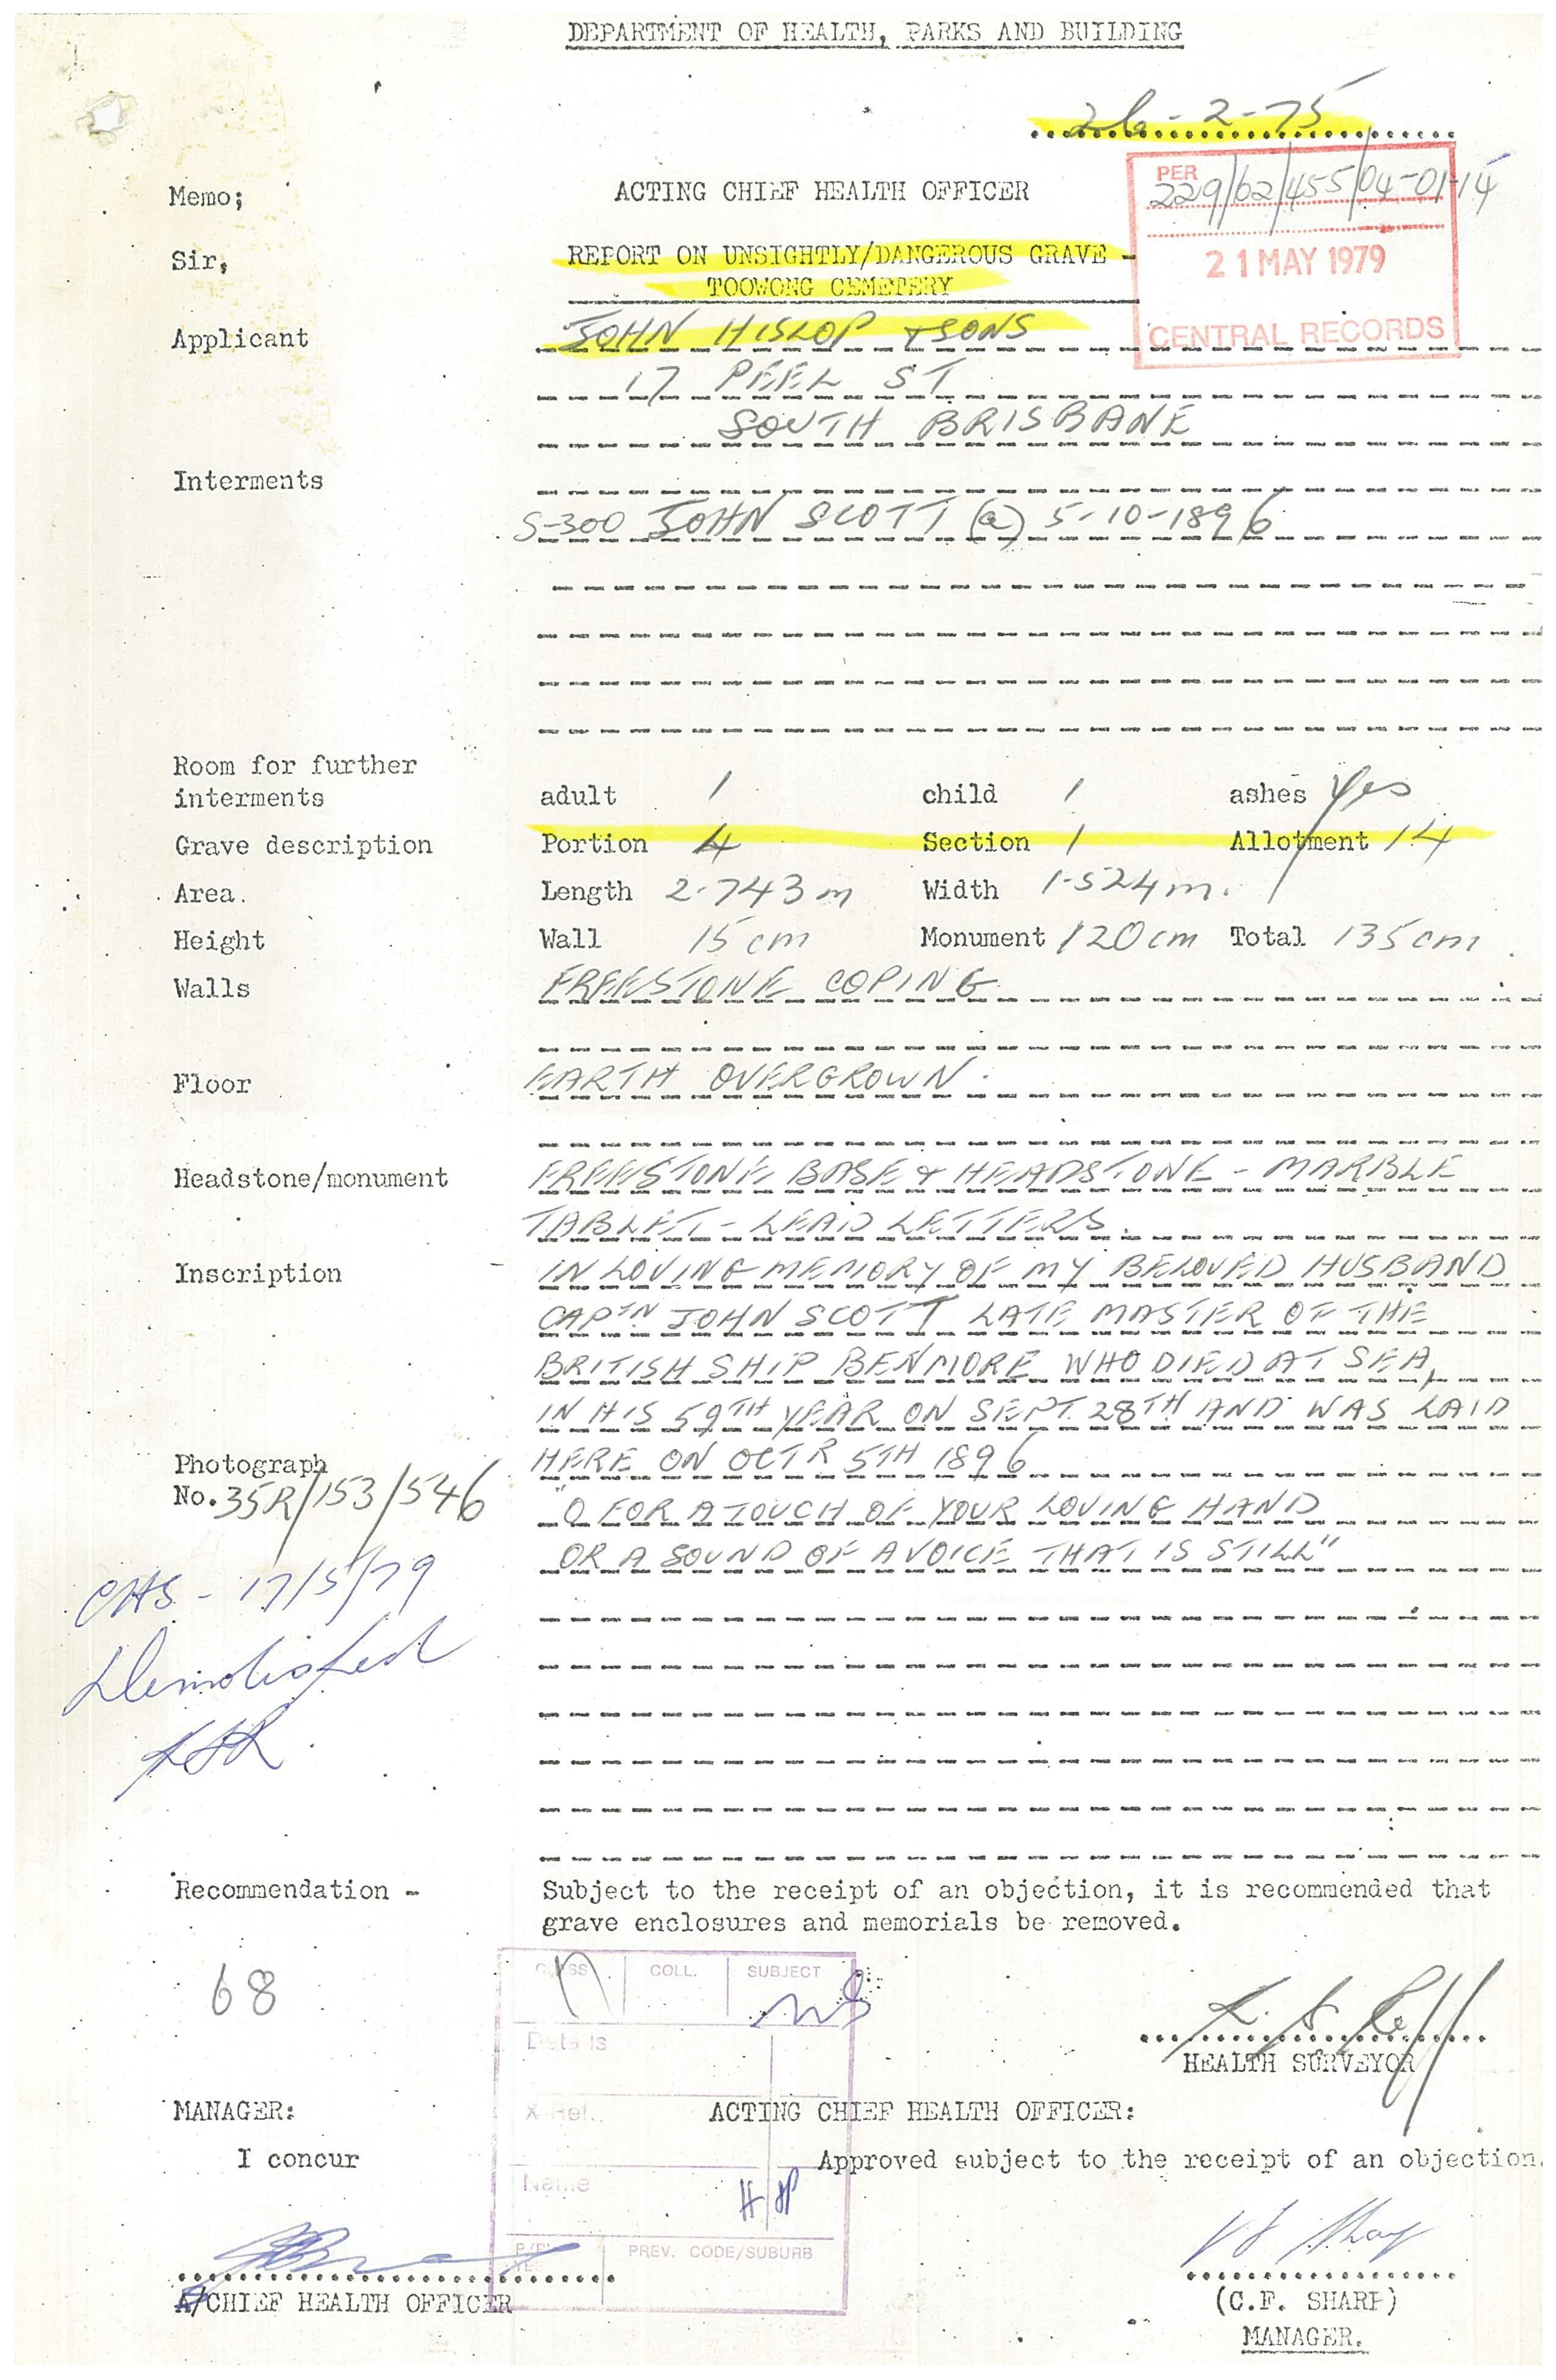 DEPARTMENT OF HEALTH, PARKS AND BUILDING
26-2-75
Memo; ACTING CHIEF HEALTH OFFICER
PER
229/62/455/04-01-14
21 MAY 1979
CENTRAL RECORDS
Sir, REPORT ON UNSIGHTLY/DANGEROUS GRAVE -
TOOWONG CEMETERY
Applicant JOHN HISLOP & SONS
17 PEEL ST
SOUTH BRISBANE
Interments
S-300 JOHN SCOTT (a) 5-10-1896
Room for further
interments adult 1 child 1 ashes Yes
Grave description Portion 4 Section 1 Allotment 14
Area. Length 2.743 m Width 1.524 m.
Height Wall 15 cm Monument 120 cm Total 135 cm
Walls FREESTONE COPING
Floor EARTH OVERGROWN.
Headstone/monument FREESTONE BASE & HEADSTONE - MARBLE
TABLET - LEAD LETTERS.
Inscription IN LOVING MEMORY OF MY BELOVED HUSBAND
CAPTN JOHN SCOTT LATE MASTER OF THE
BRITISH SHIP BENMORE WHO DIED AT SEA,
IN HIS 59TH YEAR ON SEPT. 28TH AND WAS LAID
Photograph HERE ON OCTR 5TH 1896
No. 35R/153/546 "O FOR A TOUCH OF YOUR LOVING HAND
OR A SOUND OF A VOICE THAT IS STILL"
CHS - 17/5/79
Demolished
Recommendation - Subject to the receipt of an objection, it is recommended that
grave enclosures and memorials be removed.
68
CLASS COLL. SUBJECT
Details
HEALTH SURVEYOR
X-Ref.
MANAGER: ACTING CHIEF HEALTH OFFICER:
I concur Approved subject to the receipt of an objection.
Name
PREV. CODE/SUBURB
A/CHIEF HEALTH OFFICER (C.F. SHARP)
MANAGER.